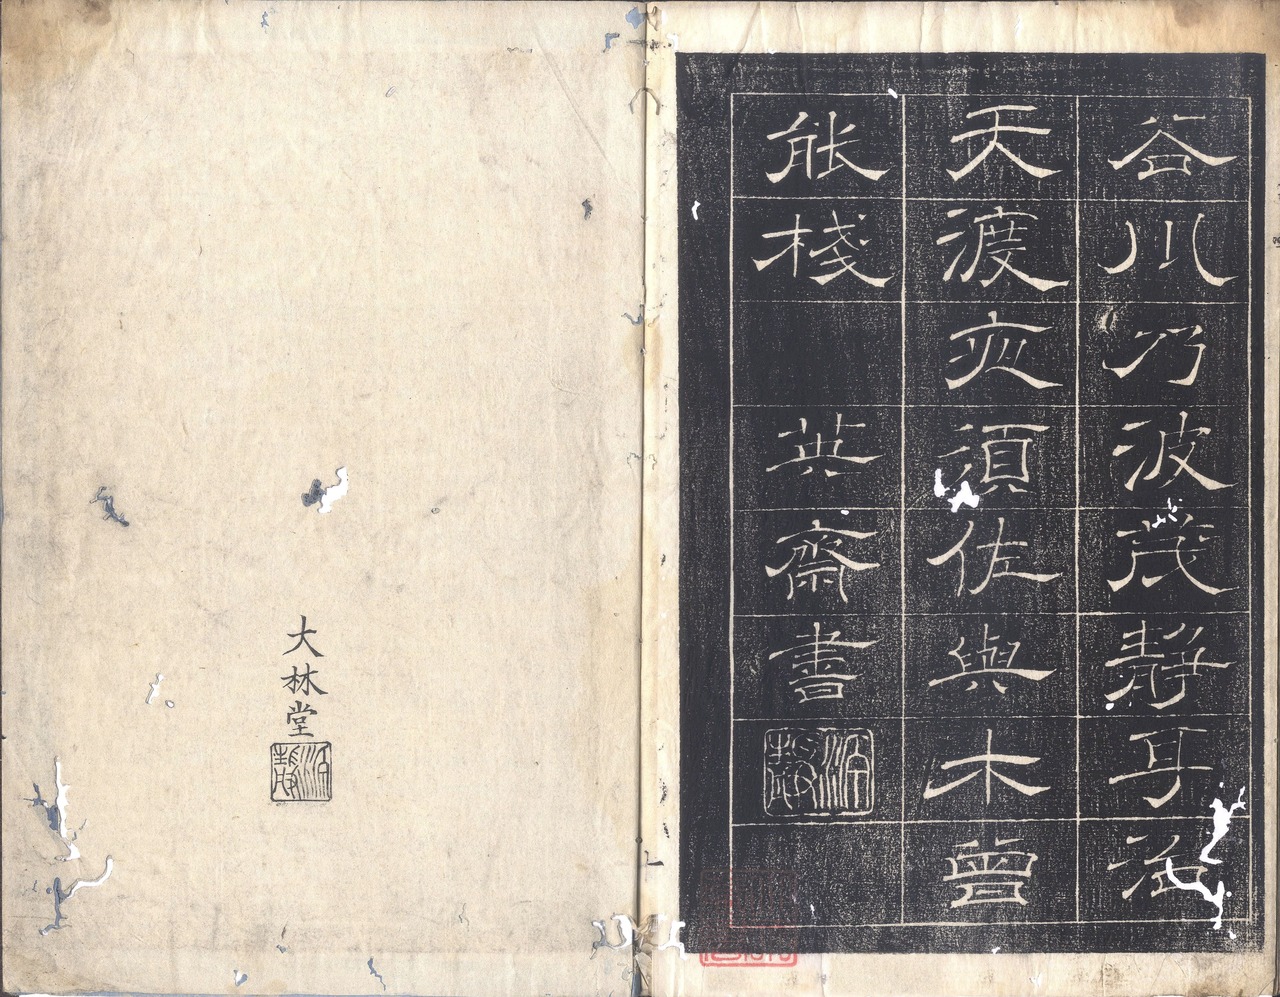 谷川乃波茂靜耳治
天渡夜須佐與木曾
能棧
英齋書
大林堂